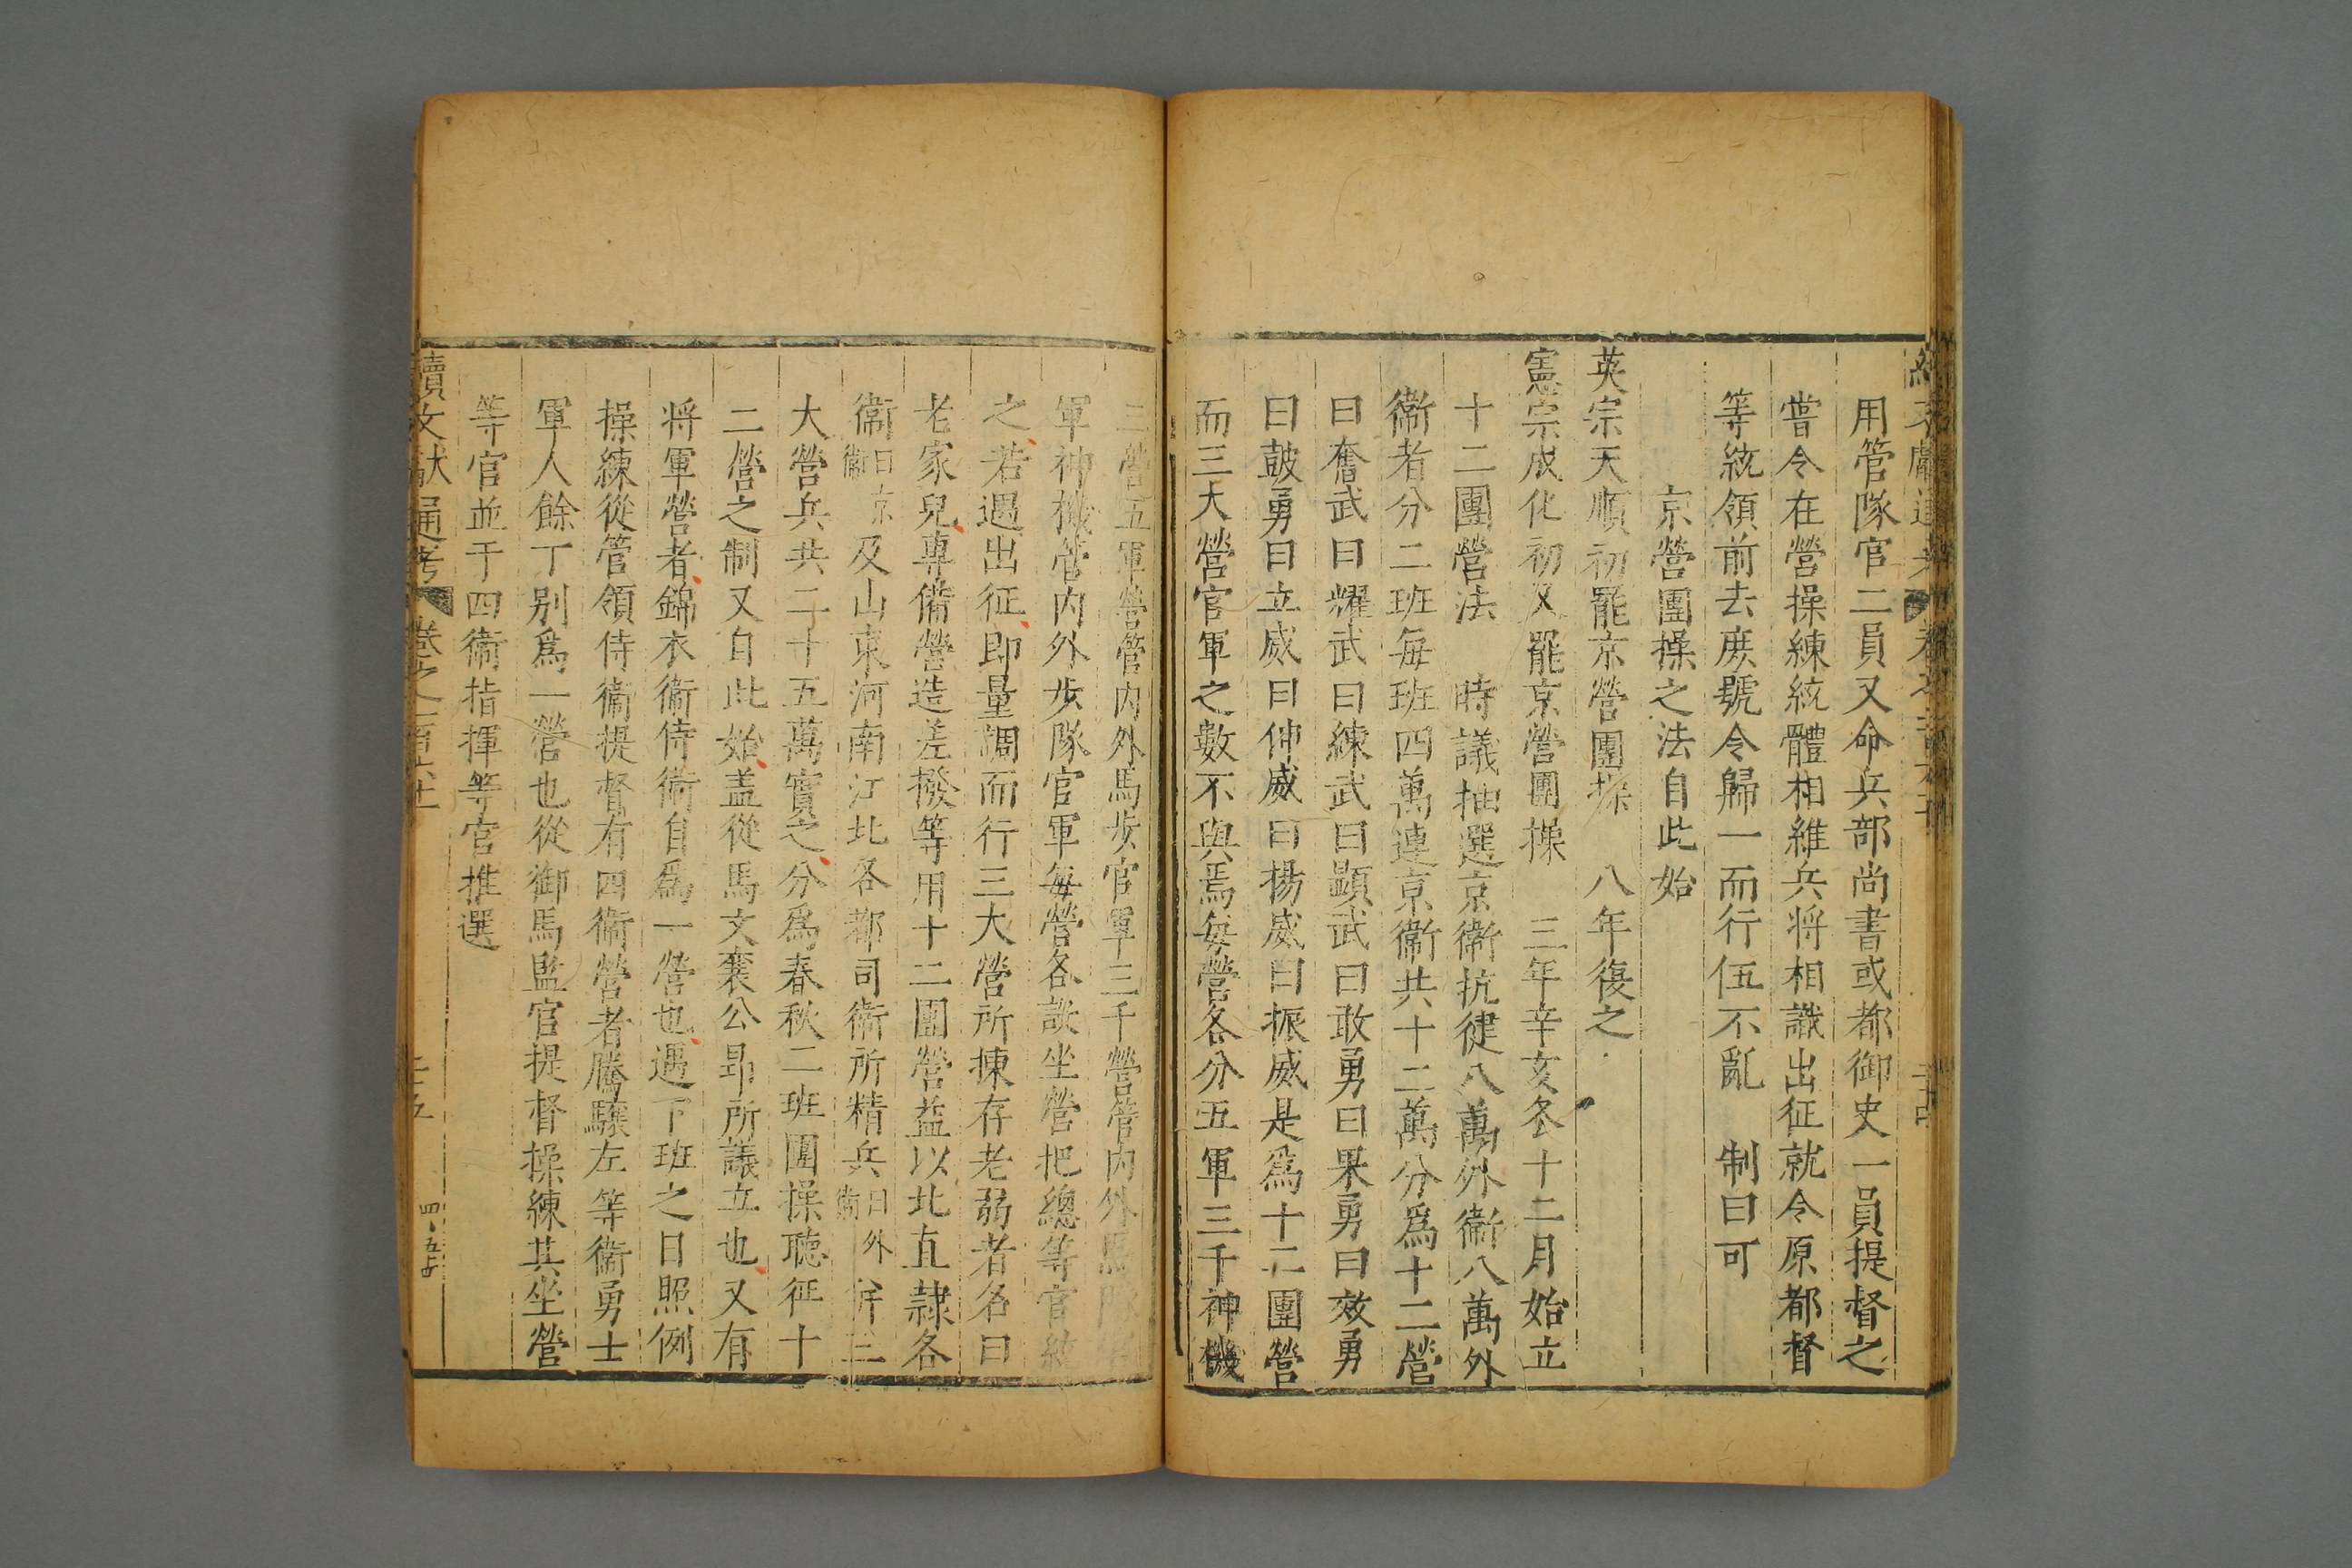 用管隊官二員又命兵部尚書或都御史一員提督之
嘗令在營操練統體相維兵将相識出征就令原都督
等統領前去庻號令歸一而行伍不亂 制曰可
京營團操之法自此始
英宗天順初罷京營團操 八年復之
憲宗成化初又罷京營團操 三年辛亥冬十二月始立
十二團營法 時議抽選京衛抗健八萬外衛八萬外
衛者分二班每班四萬連京衛共十二萬分爲十二營
曰奮武曰耀武曰練武曰顯武曰敢勇曰果勇曰效勇
曰鼓勇曰立威曰伸威曰揚威曰振威是爲十二團營
而三大營官軍之數不與焉每營各分五軍三千神機
三營五軍營管内外馬步官軍三千營管内外馬隊
軍神機管内外步隊官軍每營各設坐營把總等官統
之若遇出征即量調而行三大營所揀存老弱者名曰
老家兒專備營造差撥等用十二團營益以北直隸各
衛曰京衛及山東河南江北各都司衛所精兵曰外衛併三
大營兵共二十五萬實之分爲春秋二班團操聴征十
二營之制又自此始蓋從馬文襄公昻所議立也又有
将軍營者錦衣衛侍衛自爲一營也遇下班之日照例
操練從管領侍衛提督有四衛營者騰驤左等衛勇士
軍人餘丁别爲一營也從御馬監官提督操練其坐營
等官並于四衛指揮等官推選
續文献通考 卷之一百六十 二十五
四、五才